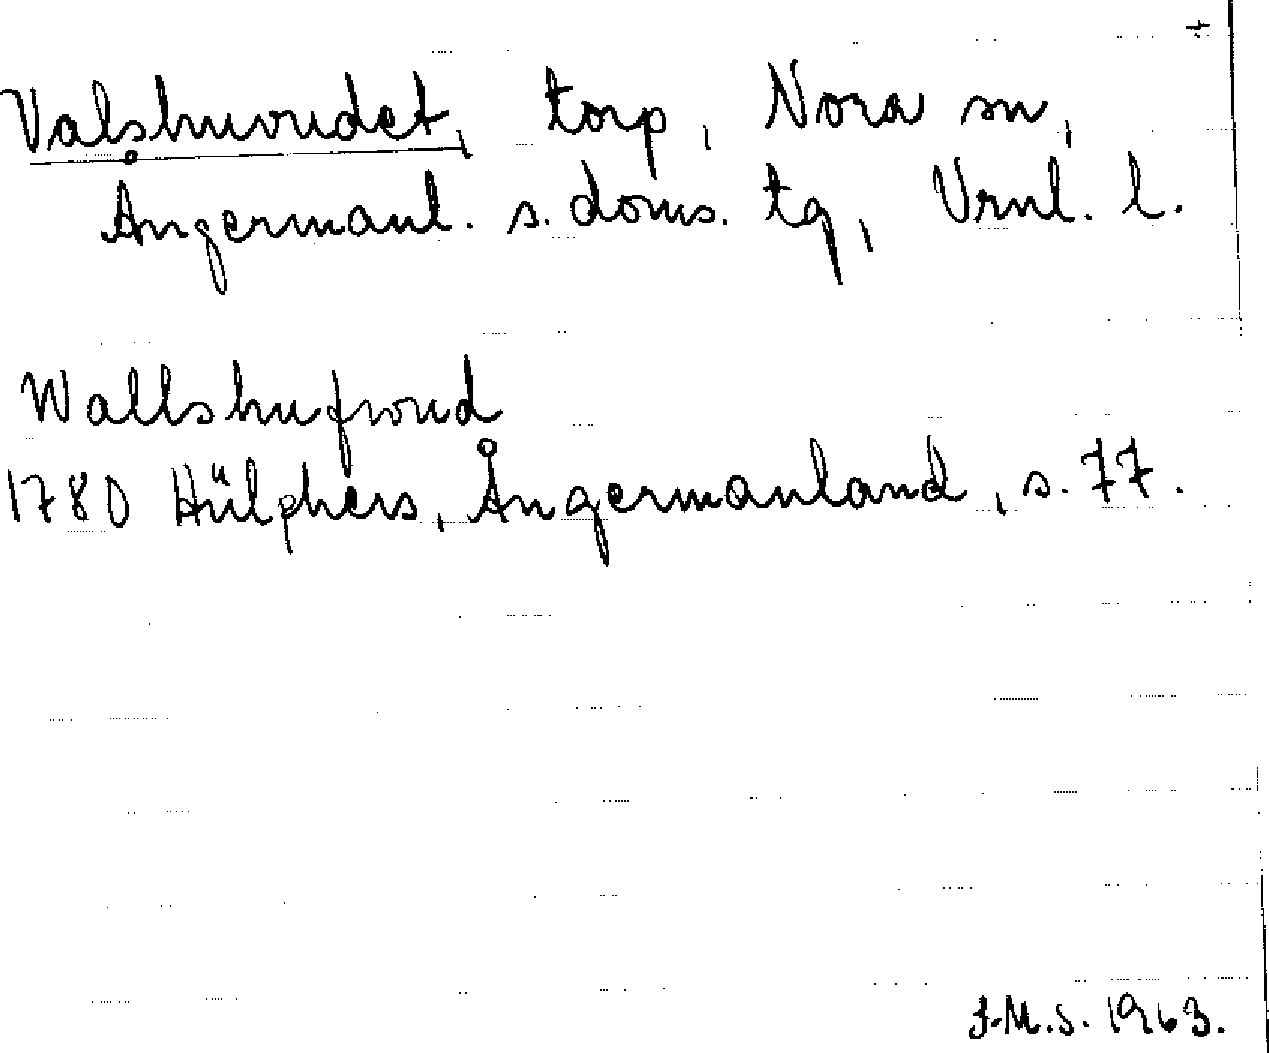 +
Valshuvudet, torp, Nora sn,
Ångermanl. s. doms. tg, Vrnl. l.
Wallshufwud
1780 Hülphers, Ångermanland, s. 77.
J.M.S. 1963.